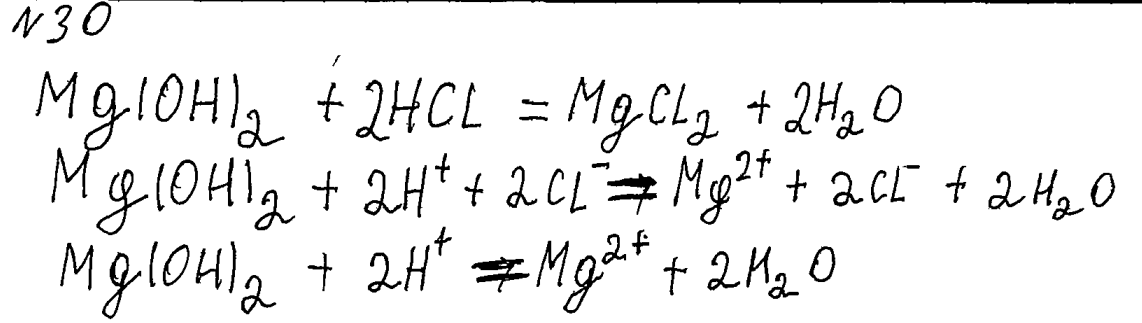 N30
Mg(OH)₂ + 2HCL = MgCL₂ + 2H₂O
Mg(OH)₂ + 2H⁺ + 2CL⁻ = Mg²⁺ + 2CL⁻ + 2H₂O
Mg(OH)₂ + 2H⁺ = Mg²⁺ + 2H₂O